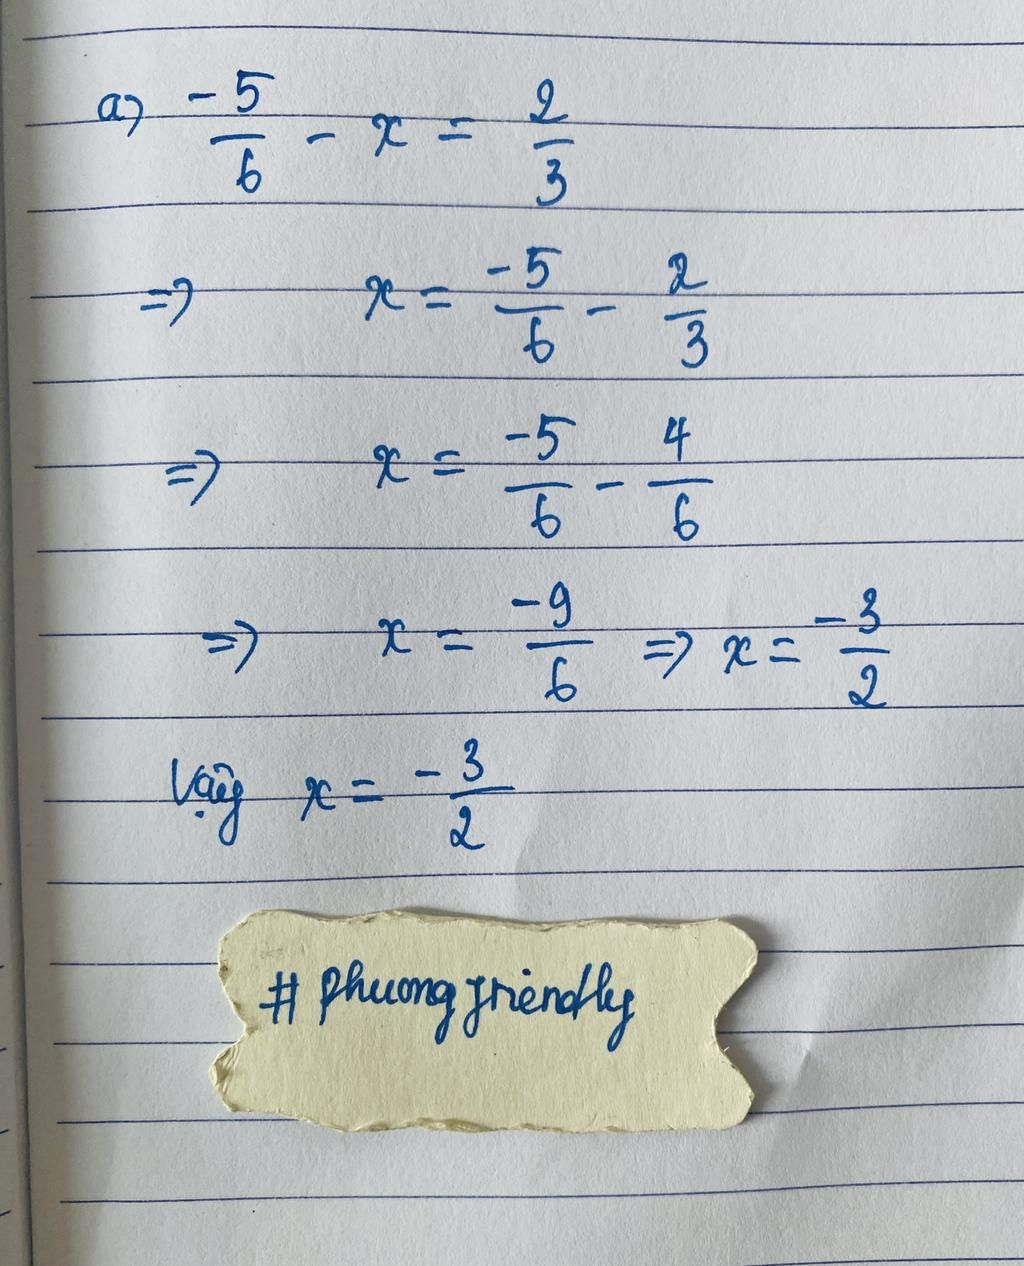 a) -5/6 - x = 2/3
=> x = -5/6 - 2/3
=> x = -5/6 - 4/6
=> x = -9/6 => x = -3/2
Vậy x = -3/2
# phuongfriendly